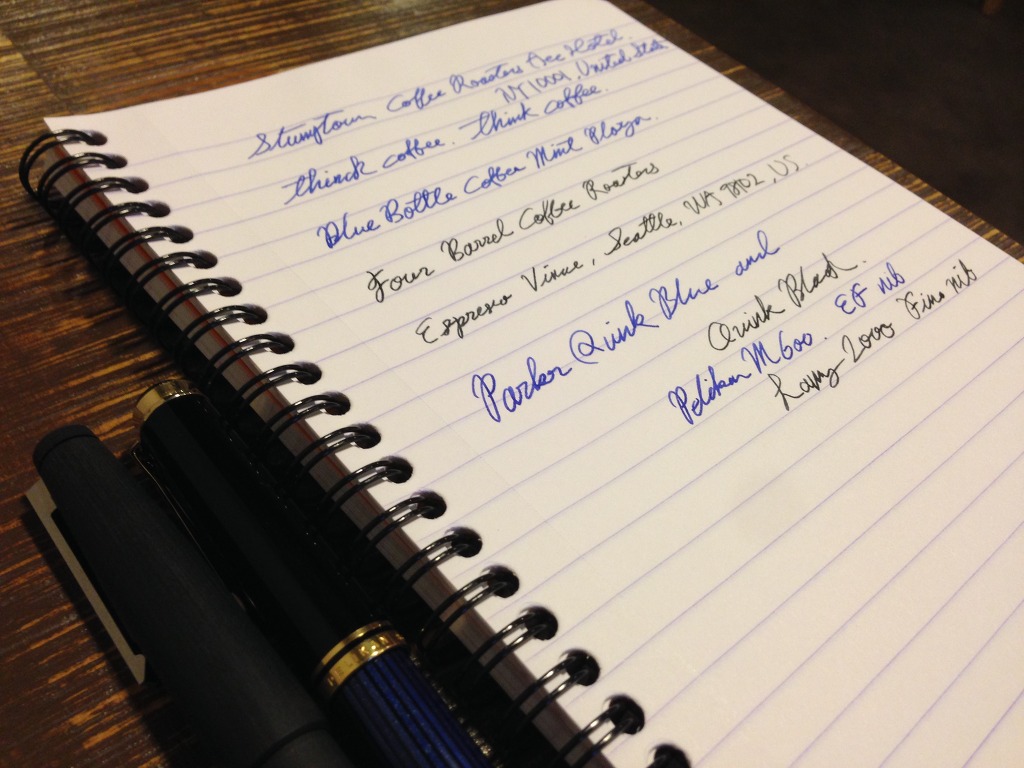 Stumptown Coffee Roasters Ace Hotel.
NY 10001, United States
think coffee. think coffee.
Blue Bottle Coffee Mint Plaza.
Four Barrel Coffee Roasters
Espresso Vivace, Seattle, WA 98102, US
Parker Quink Blue and
Quink Black.
Pelikan M600. EF nib
Lamy 2000 Fine nib